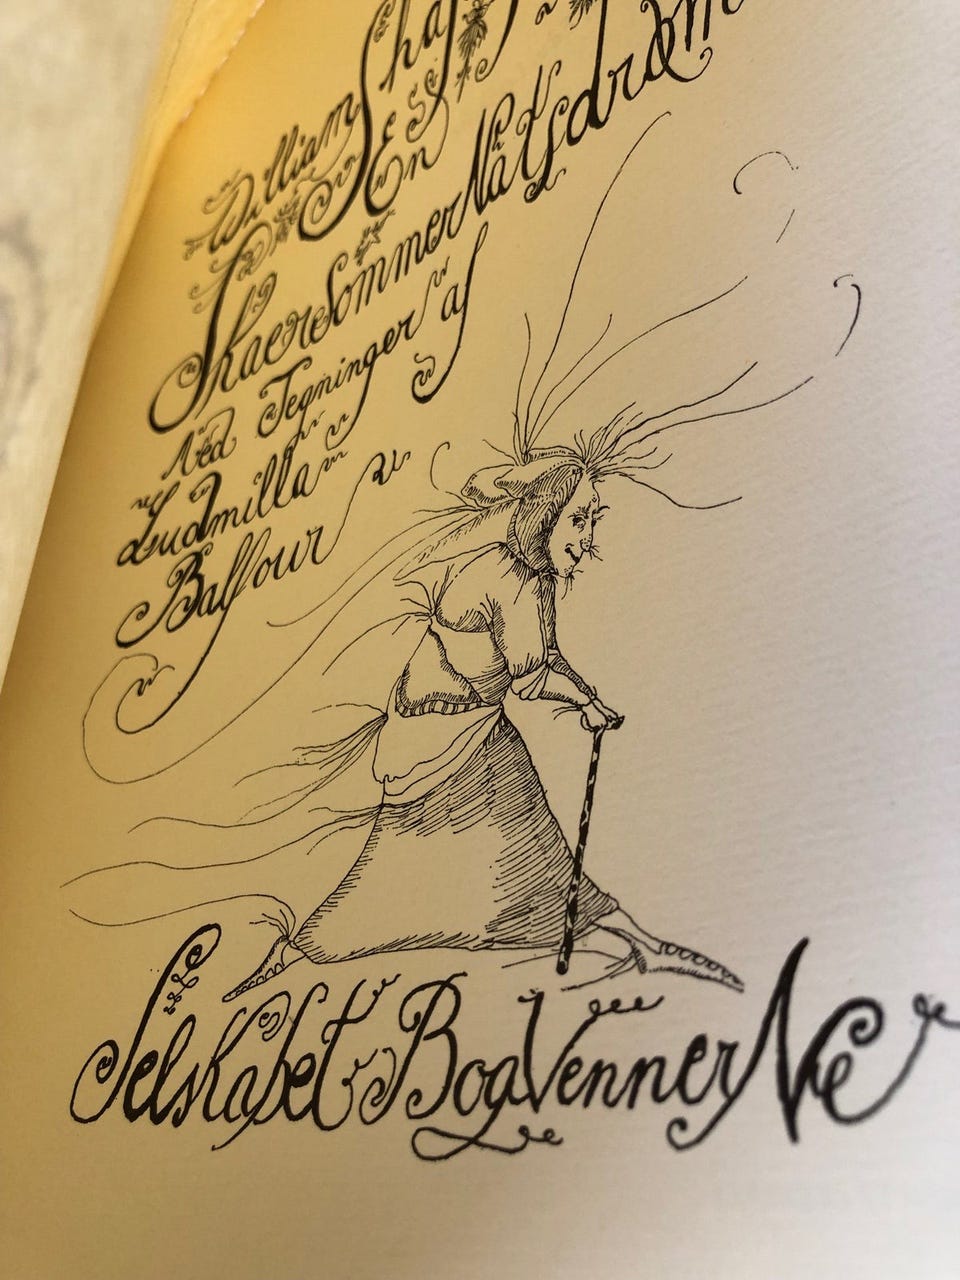 William Sha
Es En
SkaereSommerNåtsdrøm
Med Tegninger af
Ludmilla
Balfour
Selskabet BogVennerNe